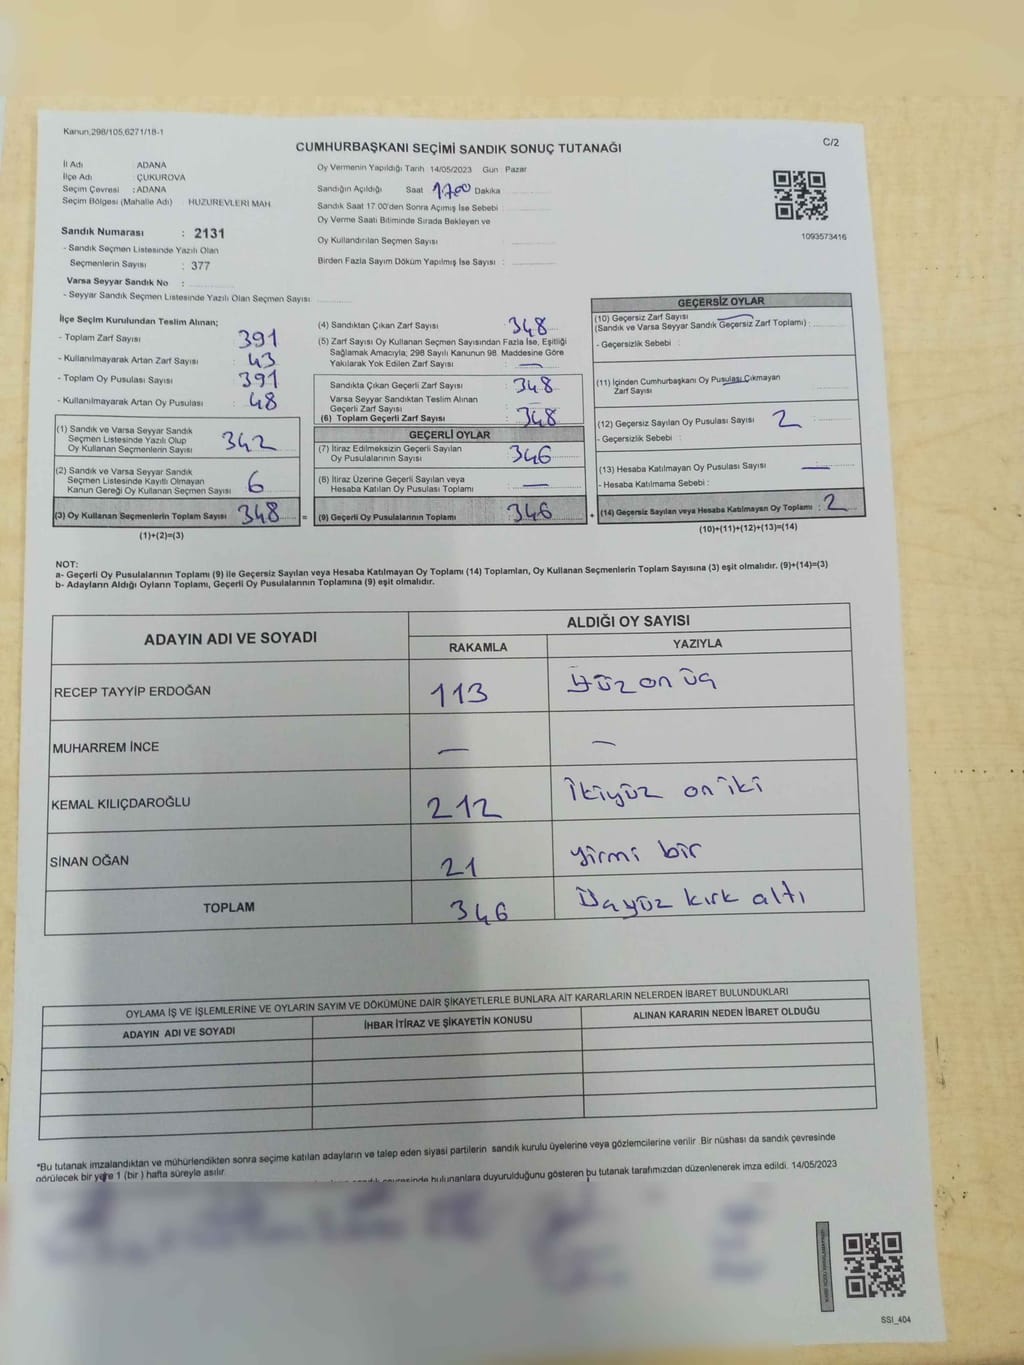 Kanun,298/105,6271/18-1
C/2
CUMHURBAŞKANI SEÇİMİ SANDIK SONUÇ TUTANAĞI
İl Adı : ADANA
İlçe Adı : ÇUKUROVA
Seçim Çevresi : ADANA
Seçim Bölgesi (Mahalle Adı) HUZUREVLERİ MAH
Sandık Numarası : 2131
- Sandık Seçmen Listesinde Yazılı Olan
Seçmenlerin Sayısı : 377
Varsa Seyyar Sandık No :
- Seyyar Sandık Seçmen Listesinde Yazılı Olan Seçmen Sayısı
Oy Vermenin Yapıldığı Tarih 14/05/2023 Gün Pazar
Sandığın Açıldığı Saat 17.00 Dakika
Sandık Saat 17.00'den Sonra Açmış İse Sebebi :
Oy Verme Saati Bitiminde Sırada Bekleyen ve
Oy Kullandırılan Seçmen Sayısı :
Birden Fazla Sayım Döküm Yapılmış İse Sayısı :
1093573416
İlçe Seçim Kurulundan Teslim Alınan;
- Toplam Zarf Sayısı : 391
- Kullanılmayarak Artan Zarf Sayısı : 43
- Toplam Oy Pusulası Sayısı : 391
- Kullanılmayarak Artan Oy Pusulası : 48
(1) Sandık ve Varsa Seyyar Sandık
Seçmen Listesinde Yazılı Olup
Oy Kullanan Seçmenlerin Sayısı : 342
(2) Sandık ve Varsa Seyyar Sandık
Seçmen Listesinde Kayıtlı Olmayan
Kanun Gereği Oy Kullanan Seçmen Sayısı : 6
(3) Oy Kullanan Seçmenlerin Toplam Sayısı : 348 =
(1)+(2)=(3)
(4) Sandıktan Çıkan Zarf Sayısı : 348
(5) Zarf Sayısı Oy Kullanan Seçmen Sayısından Fazla İse, Eşitliği
Sağlamak Amacıyla; 298 Sayılı Kanunun 98. Maddesine Göre
Yakılarak Yok Edilen Zarf Sayısı : —
Sandıkta Çıkan Geçerli Zarf Sayısı : 348
Varsa Seyyar Sandıktan Teslim Alınan
Geçerli Zarf Sayısı :
(6) Toplam Geçerli Zarf Sayısı : 348
GEÇERLİ OYLAR
(7) İtiraz Edilmeksizin Geçerli Sayılan
Oy Pusulalarının Sayısı : 346
(8) İtiraz Üzerine Geçerli Sayılan veya
Hesaba Katılan Oy Pusulası Toplamı : —
(9) Geçerli Oy Pusulalarının Toplamı : 346 +
GEÇERSİZ OYLAR
(10) Geçersiz Zarf Sayısı —
(Sandık ve Varsa Seyyar Sandık Geçersiz Zarf Toplamı) :
- Geçersizlik Sebebi :
(11) İçinden Cumhurbaşkanı Oy Pusulası Çıkmayan
Zarf Sayısı : —
(12) Geçersiz Sayılan Oy Pusulası Sayısı : 2
- Geçersizlik Sebebi :
(13) Hesaba Katılmayan Oy Pusulası Sayısı : —
- Hesaba Katılmama Sebebi :
(14) Geçersiz Sayılan veya Hesaba Katılmayan Oy Toplamı : 2
(10)+(11)+(12)+(13)=(14)
NOT:
a- Geçerli Oy Pusulalarının Toplamı (9) ile Geçersiz Sayılan veya Hesaba Katılmayan Oy Toplamı (14) Toplamları, Oy Kullanan Seçmenlerin Toplam Sayısına (3) eşit olmalıdır. (9)+(14)=(3)
b- Adayların Aldığı Oyların Toplamı, Geçerli Oy Pusulalarının Toplamına (9) eşit olmalıdır.
ADAYIN ADI VE SOYADI
ALDIĞI OY SAYISI
RAKAMLA YAZIYLA
RECEP TAYYİP ERDOĞAN 113 Yüz on üç
MUHARREM İNCE — —
KEMAL KILIÇDAROĞLU 212 İkiyüz on iki
SİNAN OĞAN 21 yirmi bir
TOPLAM 346 Üçyüz kırk altı
OYLAMA İŞ VE İŞLEMLERİNE VE OYLARIN SAYIM VE DÖKÜMÜNE DAİR ŞİKAYETLERLE BUNLARA AİT KARARLARIN NELERDEN İBARET BULUNDUKLARI
ADAYIN ADI VE SOYADI İHBAR İTİRAZ VE ŞİKAYETİN KONUSU ALINAN KARARIN NEDEN İBARET OLDUĞU
*Bu tutanak imzalandıktan ve mühürlendikten sonra seçime katılan adayların ve talep eden siyasi partilerin sandık kurulu üyelerine veya gözlemcilerine verilir. Bir nüshası da sandık çevresinde
görülecek bir yere 1 (bir ) hafta süreyle asılır.
bulunanlara duyurulduğunu gösteren bu tutanak tarafımızdan düzenlenerek imza edildi. 14/05/2023
SSI_404